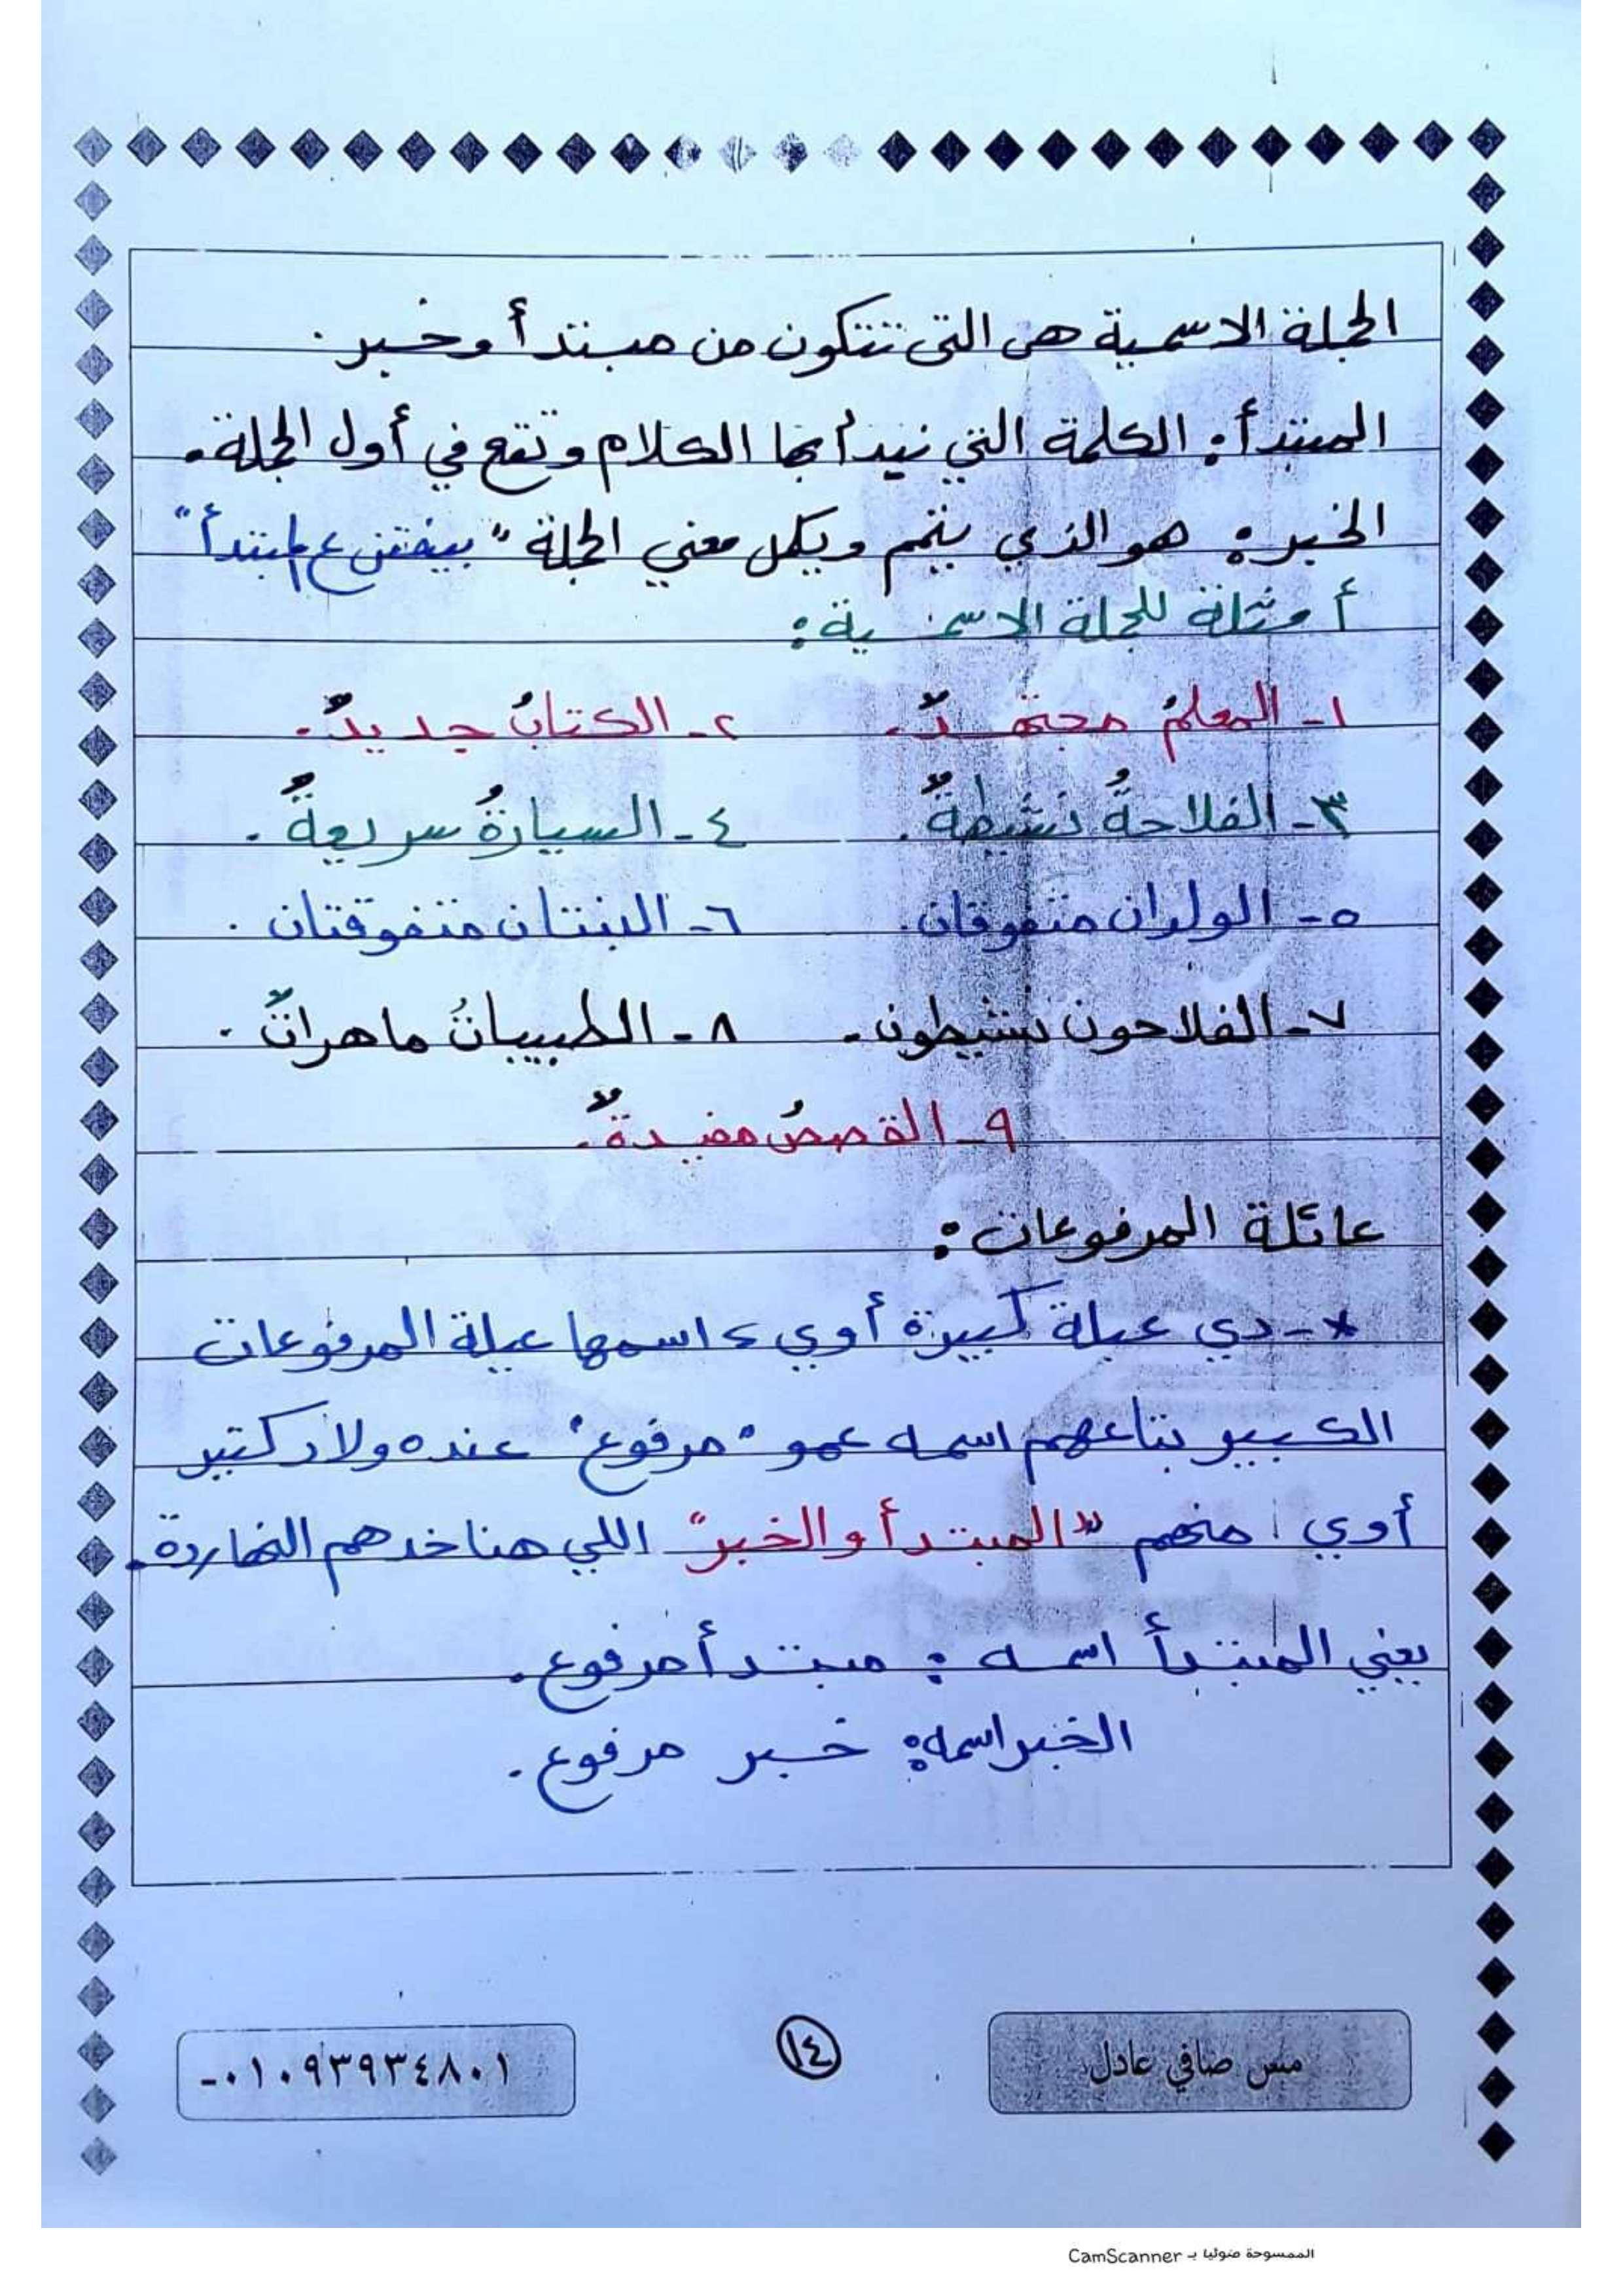 الجملة الاسمية هي التي تتكون من مبتدأ وخبر.
المبتدأ: الكلمة التي نبدأ بها الكلام وتقع في أول الجملة.
الخبر: هو الذي يتمم ويكمل معني الجملة "بيفتن ع المبتدأ"
أمثلة للجملة الاسمية:
١- المعلمُ مجتهدٌ. ٢- الكتابُ جديدٌ.
٣- الفلاحةُ نشيطةٌ. ٤- السيارةُ سريعةٌ.
٥- الولدان متفوقان. ٦- البنتان متفوقتان.
٧- الفلاحون نشيطون. ٨- الطبيباتُ ماهراتٌ.
٩- القصصُ مفيدةٌ.
عائلة المرفوعات:
*- دي عيلة كبيرة أوي، اسمها عيلة المرفوعات
الكبير بتاعهم اسمه عمو "مرفوع" عنده ولاد كتير
أوي منهم "المبتدأ والخبر" اللي هناخدهم النهاردة.
يعني المبتدأ اسمه: مبتدأ مرفوع.
الخبر اسمه: خبر مرفوع.
مس صافي عادل ١٤ ٠١٠٩٣٩٣٤٨٠١-
الممسوحة ضوئيا بـ CamScanner